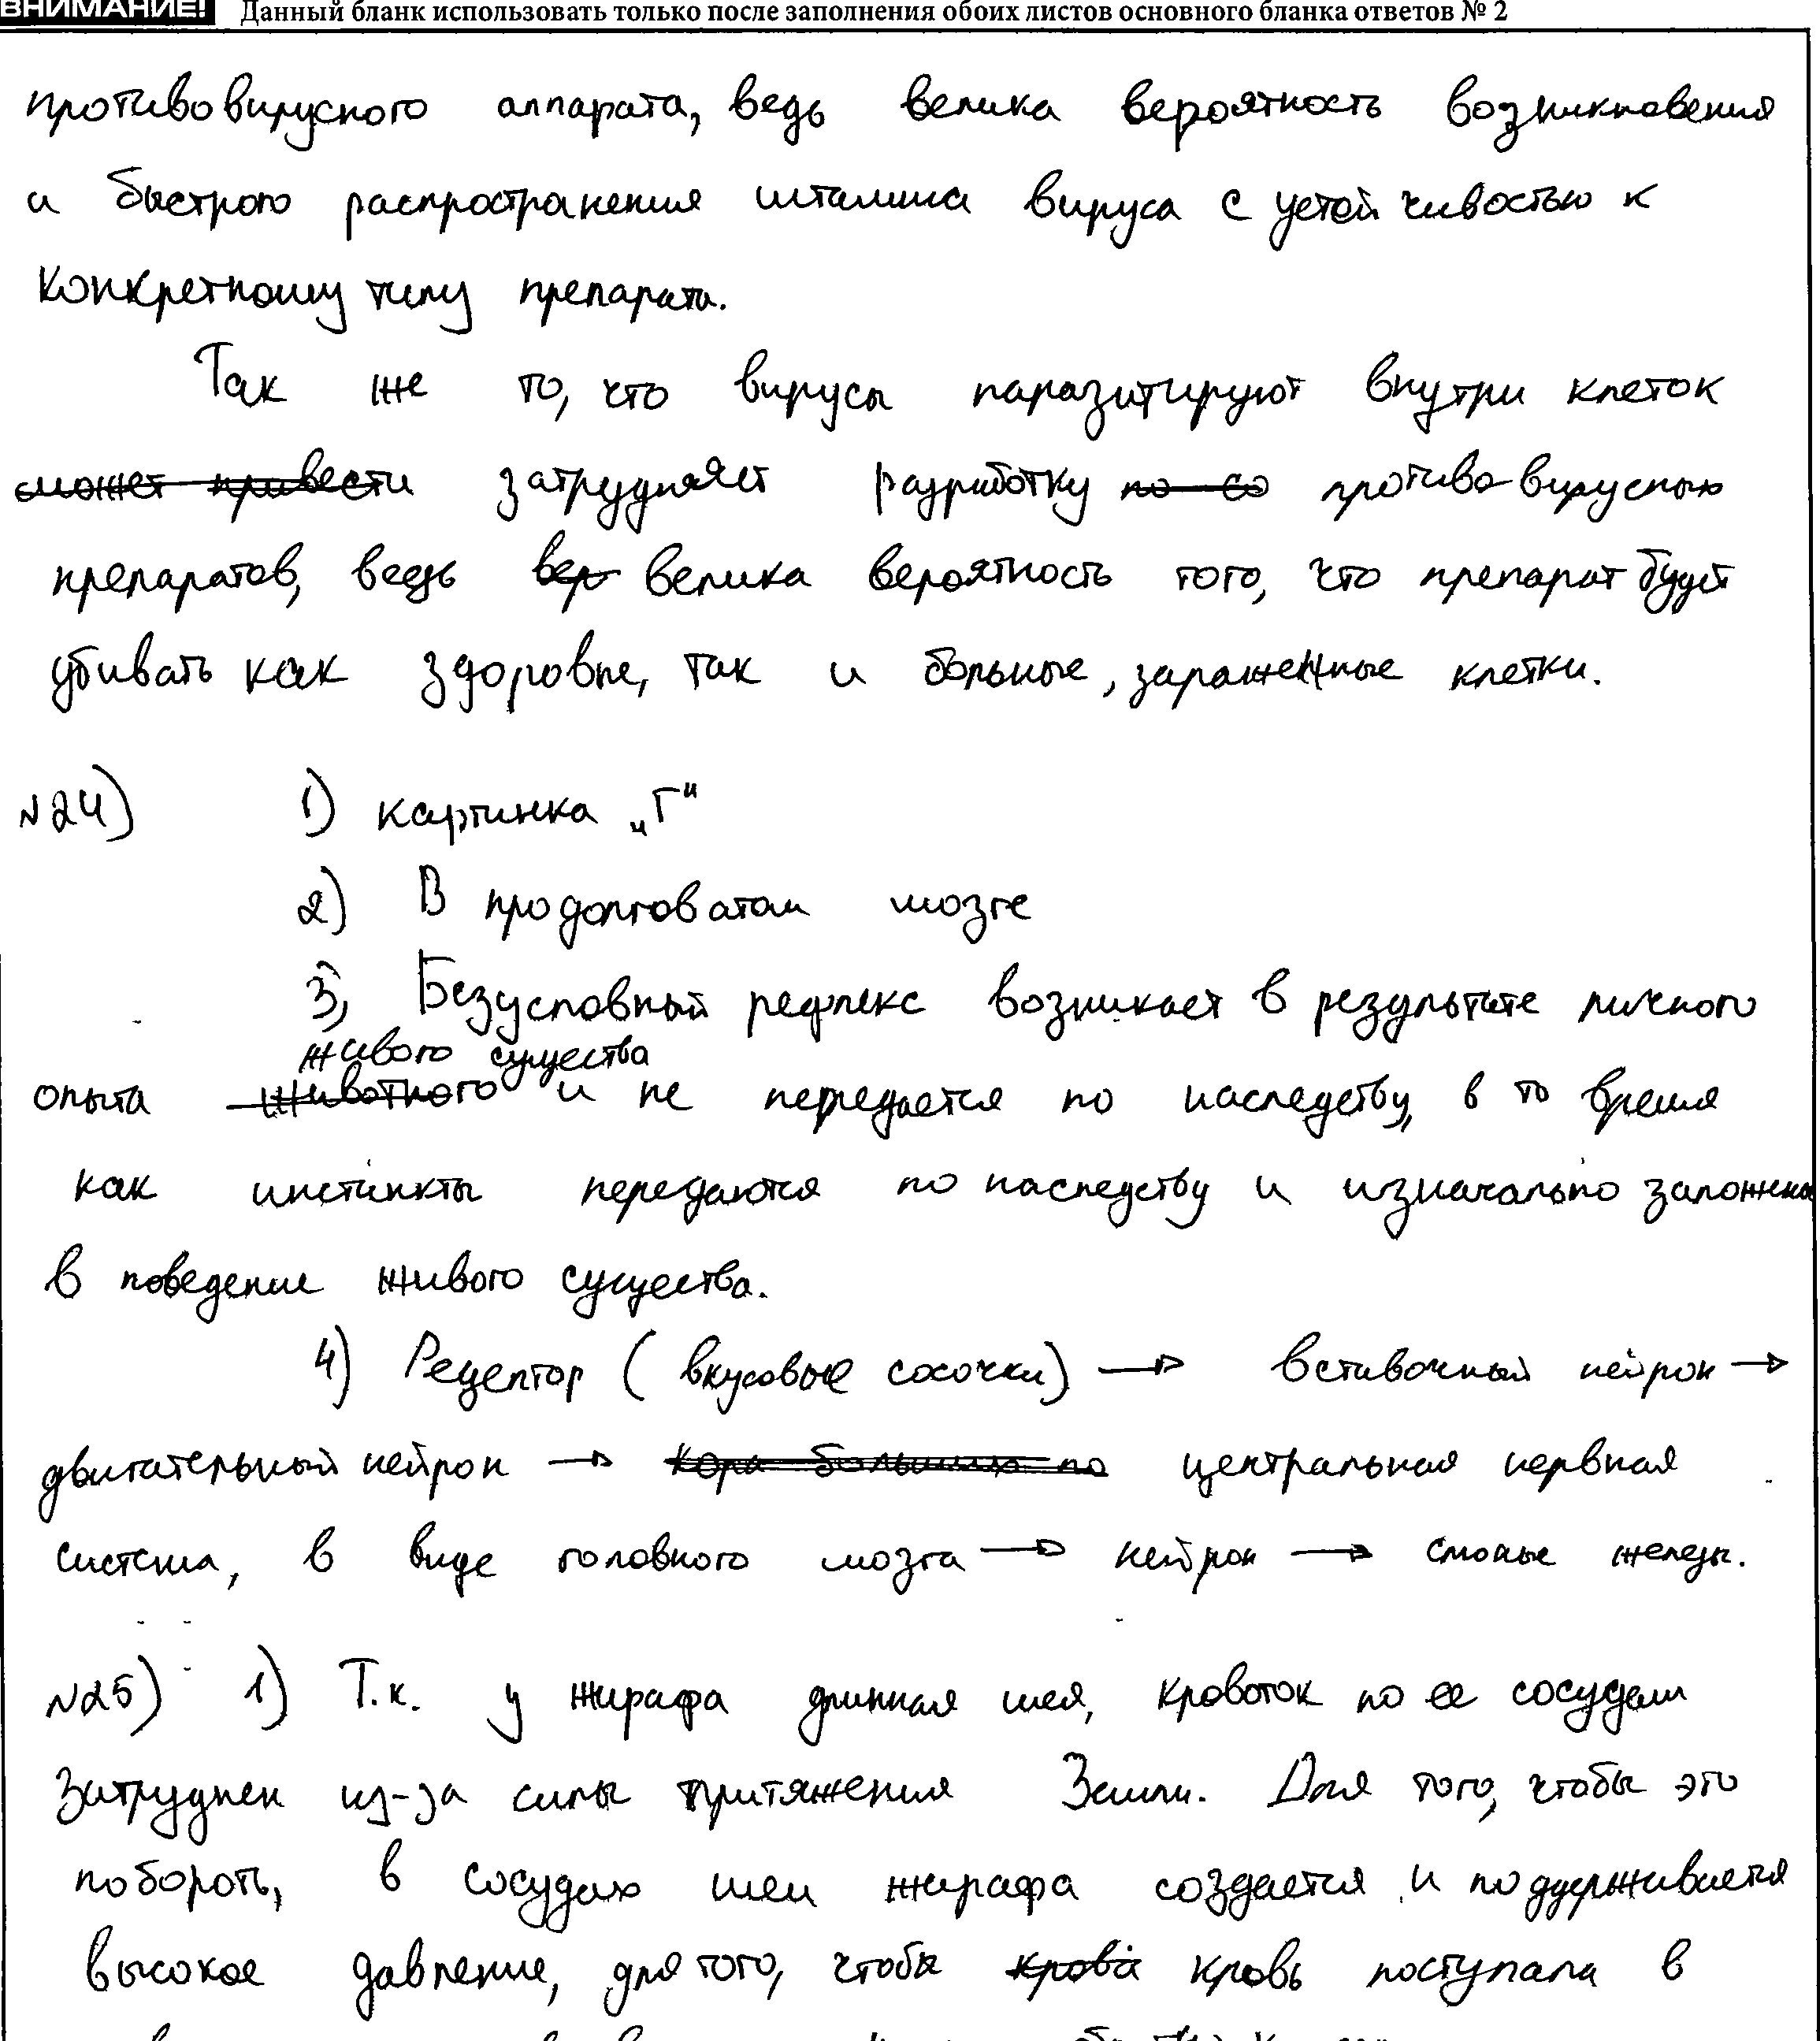 ВНИМАНИЕ! Данный бланк использовать только после заполнения обоих листов основного бланка ответов № 2
противовирусного аппарата, ведь велика вероятность возникновения
и быстрого распространения штамма вируса с устойчивостью к
конкретному типу препарата.
Так же то, что вирусы паразитируют внутри клеток
может привести затрудняет разработку по со противовирусных
препаратов, ведь вер велика вероятность того, что препарат будет
убивать как здоровые, так и больные, зараженные клетки.
№24) 1) картинка „Г“
2) В продолговатом мозге
3) Безусловный рефлекс возникает в результате личного
живого существа
опыта животного и не передается по наследству, в то время
как инстинкты передаются по наследству и изначально заложены
в поведение живого существа.
4) Рецептор (вкусовые сосочки) → вставочный нейрон →
двигательный нейрон → кора больших по центральная нервная
система, в виде головного мозга → нейрон → слюные железы.
№25) 1) Т.к. у жирафа длинная шея, кровоток по ее сосудам
затруднен из-за силы притяжения Земли. Для того, чтобы это
побороть, в сосудах шеи жирафа создается и поддерживается
высокое давление, для того, чтобы крови кровь поступала в